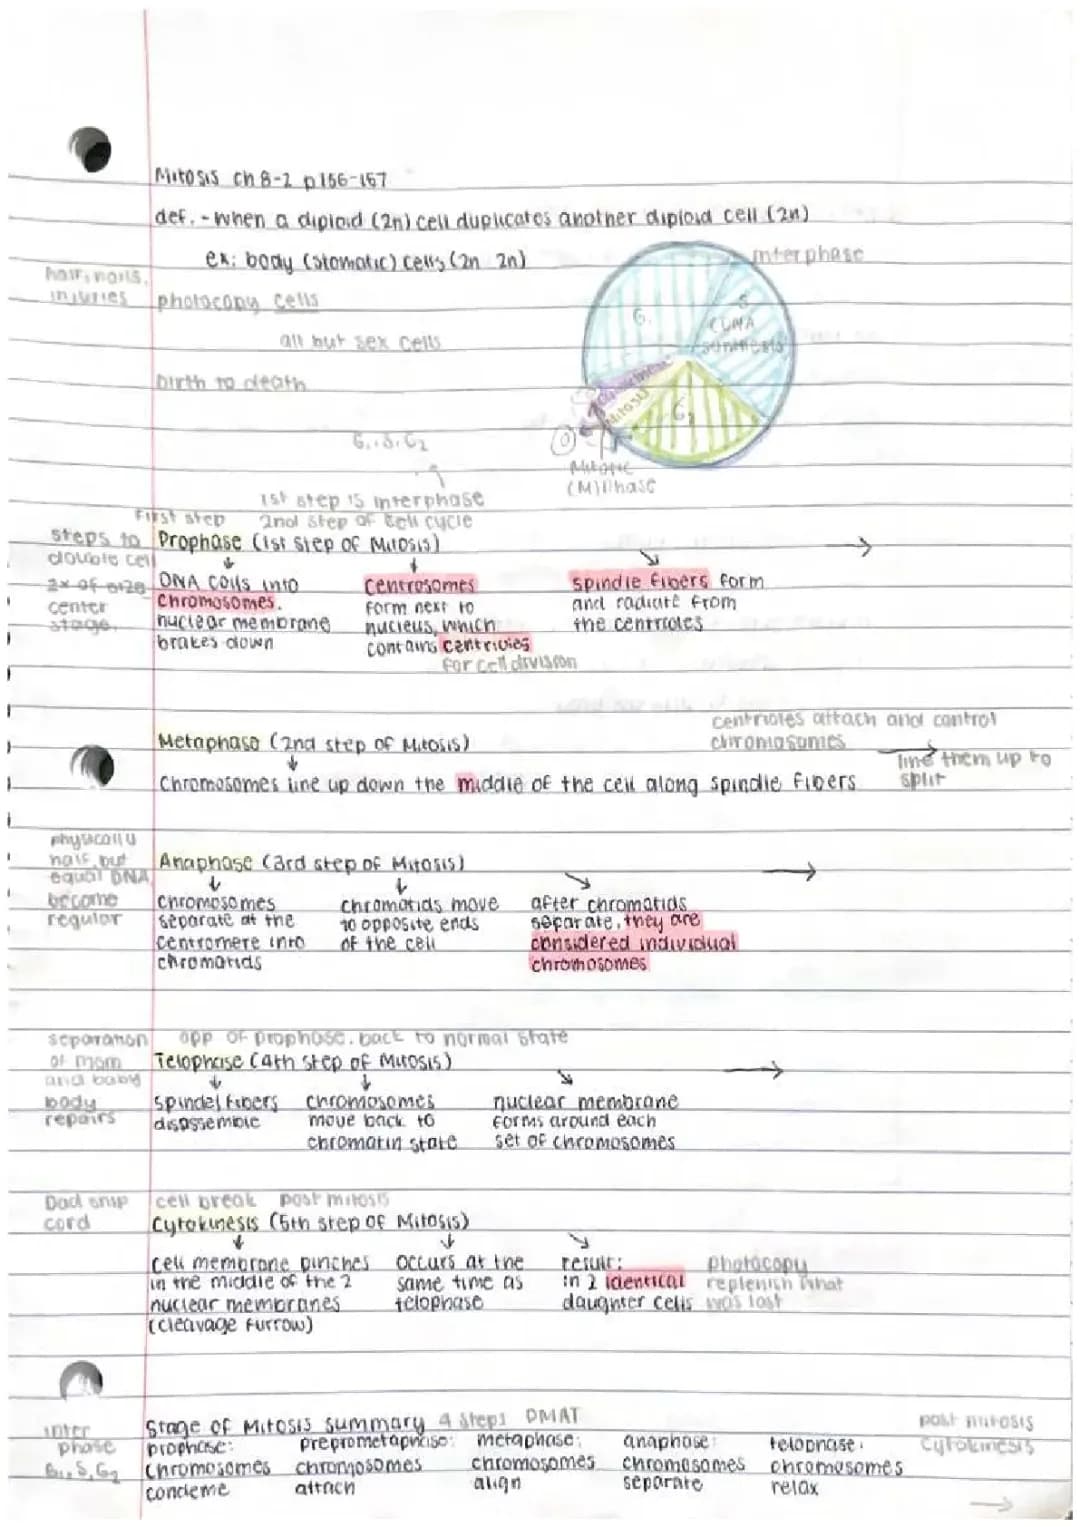 Mitosis ch 8-2 p156-157
def. - when a diploid (2n) cell duplicates another diploid cell (2n)
ex: body (stomatic) cells (2n 2n)
interphase
hair, nails,
injuries
photocopy cells
all but sex cells
birth to death
G1
S
(DNA
synthesis)
G2
Mitosis
Mitotic
(M) Phase
G1, S, G2
1st step is interphase
First step 2nd step of cell cycle
steps to
double cell
2x of size
center
stage.
Prophase (1st step of Mitosis)
DNA coils into
chromosomes.
nuclear membrane
brakes down
centrosomes
form next to
nucleus, which
contains centrioles
for cell division
spindle fibers form
and radiate from
the centrioles
centrioles attach and control
chromosomes
line them up to
split
Metaphase (2nd step of Mitosis)
Chromosomes line up down the middle of the cell along spindle fibers
physically
half, but
equal DNA
become
regular
Anaphase (3rd step of Mitosis)
chromosomes
separate at the
centromere into
chromatids
chromatids move
to opposite ends
of the cell
after chromatids
separate, they are
considered individual
chromosomes
separation
of mom
and baby
body
repairs
opp of prophase. back to normal state
Telophase (4th step of Mitosis)
spindel fibers
disassemble
chromosomes
move back to
chromatin state
nuclear membrane
forms around each
set of chromosomes
Dad snip
cord
cell break post mitosis
Cytokinesis (5th step of Mitosis)
cell membrane pinches
in the middle of the 2
nuclear membranes
(cleavage furrow)
occurs at the
same time as
telophase
result:
in 2 identical
daughter cells
photocopy
replenish what
was lost
Stage of Mitosis summary 4 steps PMAT
inter
phase
G1, S, G2
prophase:
chromosomes
condeme
chromosomes
attach
metaphase:
chromosomes
align
anaphase:
chromosomes
separate
telophase:
chromosomes
relax
post mitosis
cytokinesis